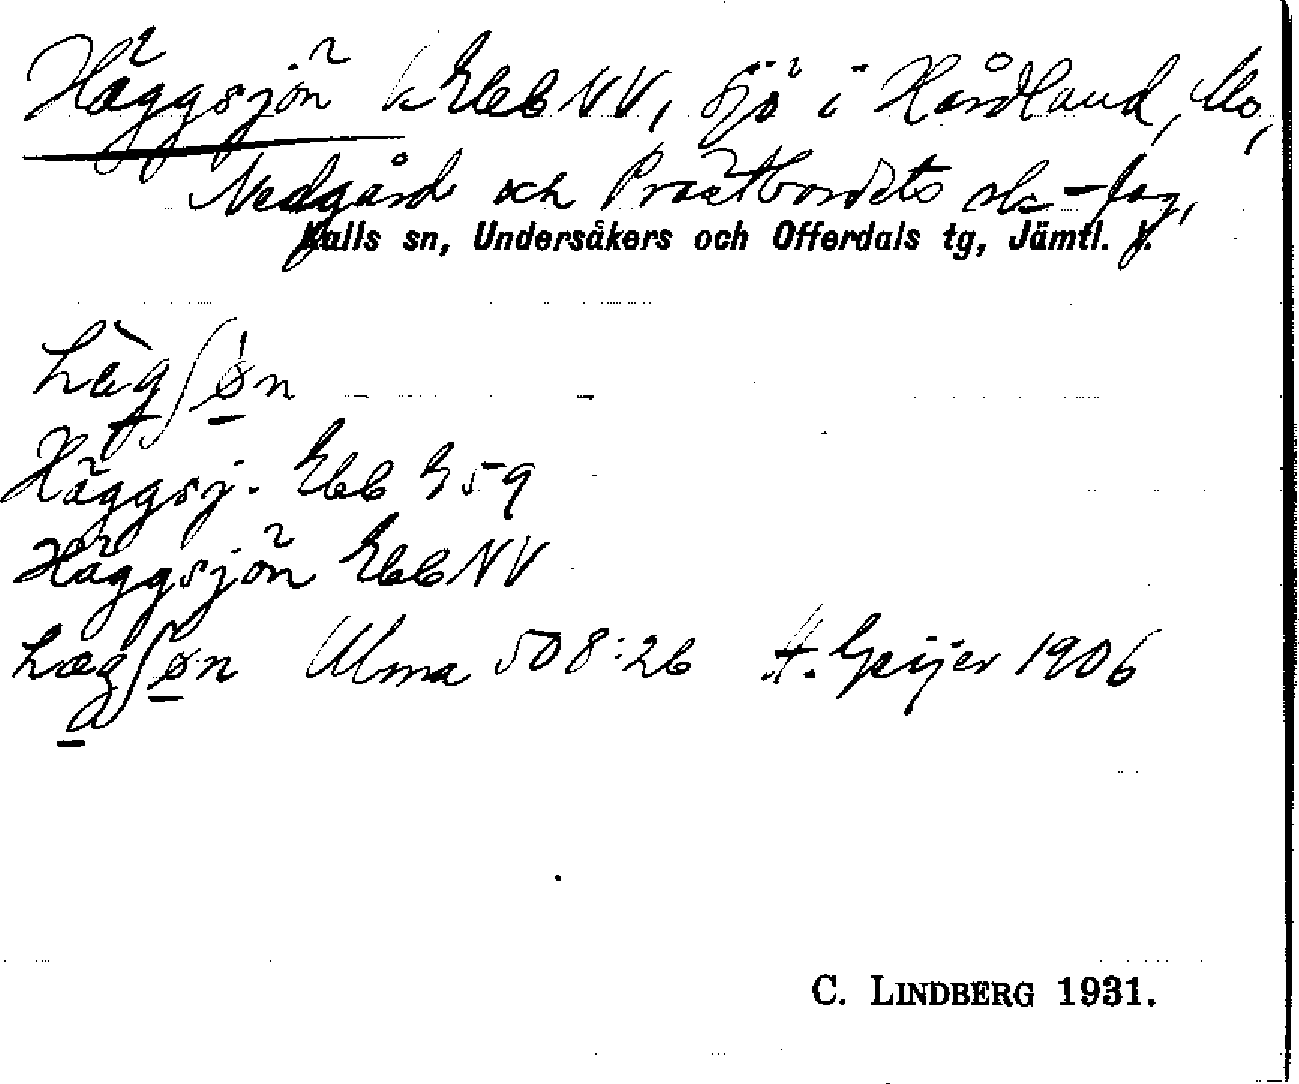 Häggsjön k Ebb NV, sjö i Kårdland, Mo,
Nedgård och Prästbordets sk-lag,
Kalls sn, Undersåkers och Offerdals tg, Jämtl. l.
hægʃøn
Häggsj. Ebb G 59
Häggsjön Ebb NV
hægʃøn Ulma 508:26 H. Geijer 1906
C. LINDBERG 1931.